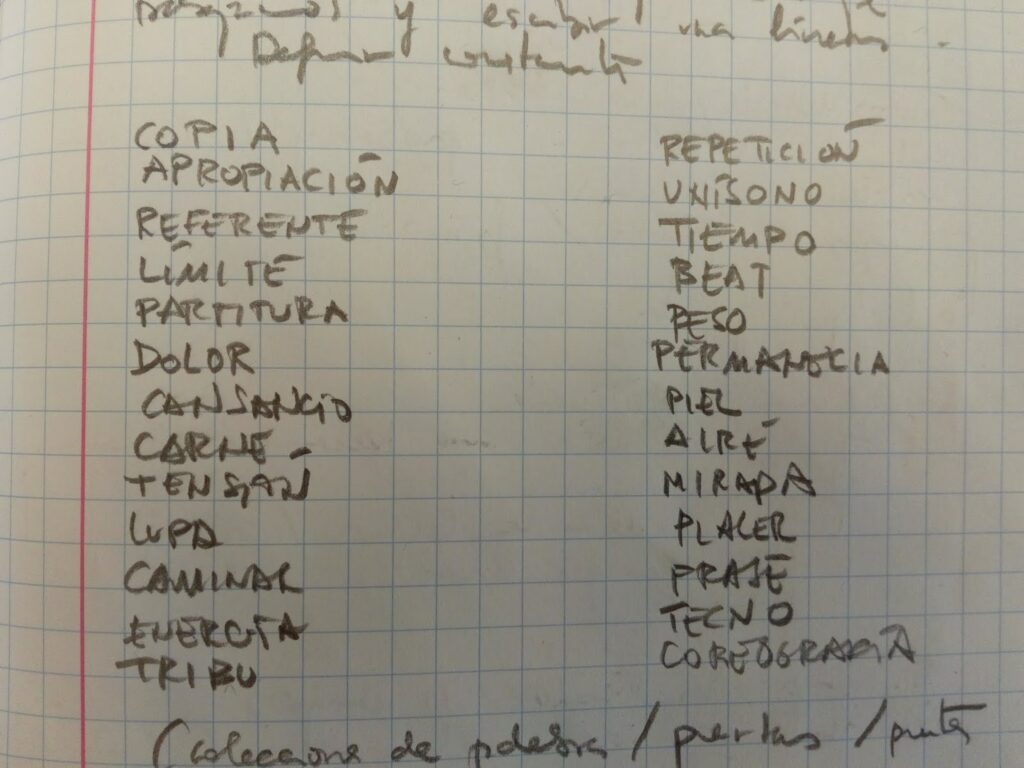 y escribir una línea
Definir
COPIA
APROPIACIÓN
REFERENTE
LÍMITE
PARTITURA
DOLOR
CANSANCIO
CARNE
TENSIÓN
LUPA
CAMINAR
ENERGÍA
TRIBU
REPETICIÓN
UNÍSONO
TIEMPO
BEAT
PESO
PERMANECIA
PIEL
AIRE
MIRADA
PLACER
FRASE
TECNO
COREOGRAFÍA
(colecciona de palabra / puertas /